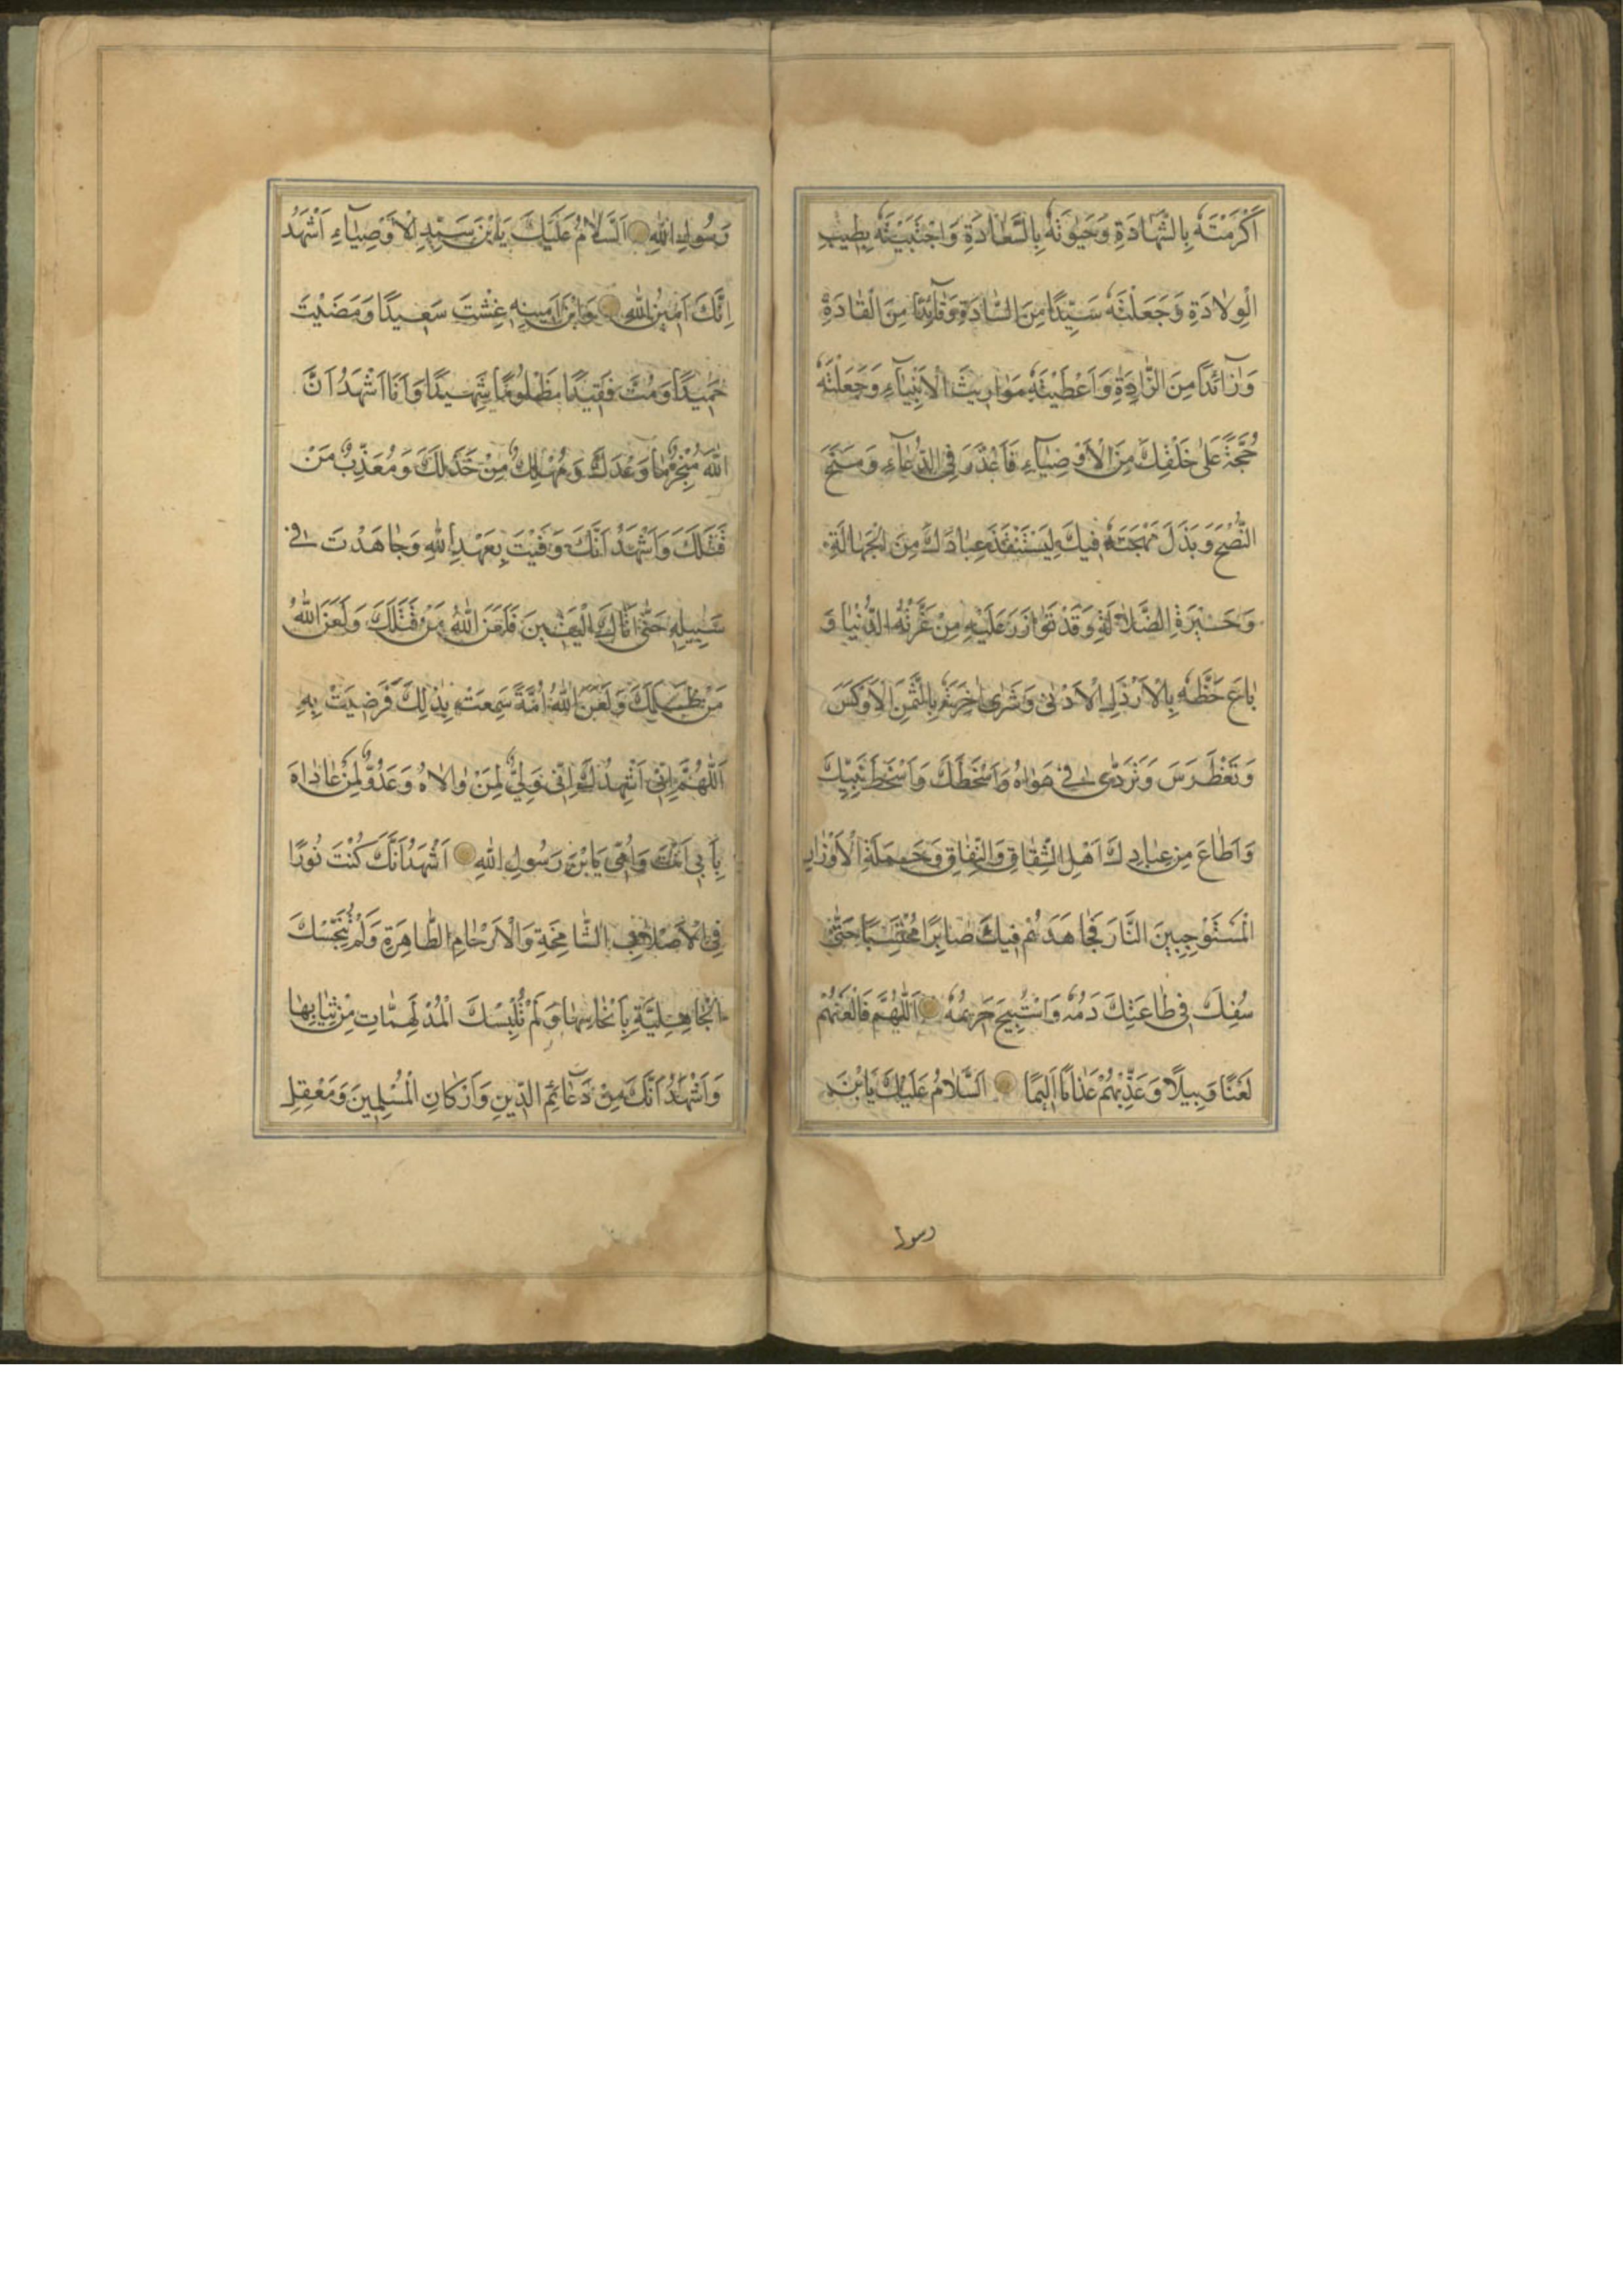 اَكْرَمْتَهُ بِالشَّهَادَةِ وَحَبَوْتَهُ بِالسَّعَادَةِ وَاجْتَبَيْتَهُ بِطِيبِ
الْوِلَادَةِ وَجَعَلْتَهُ سَيِّدًا مِنَ السَّادَةِ وَقَآئِدًا مِنَ الْقَادَةِ
وَزَآئِدًا مِنَ الزَّادَةِ وَاَعْطَيْتَهُ مَوَارِيثَ الْاَنْبِيَآءِ وَجَعَلْتَهُ
حُجَّةً عَلٰى خَلْقِكَ مِنَ الْاَوْصِيَآءِ فَاَعْذَرَ فِى الدُّعَآءِ وَمَنَحَ
النُّصْحَ وَبَذَلَ مُهْجَتَهُ فِيكَ لِيَسْتَنْقِذَ عِبَادَكَ مِنَ الْجَهَالَةِ
وَحَيْرَةِ الضَّلَالَةِ وَقَدْ تَوَازَرَ عَلَيْهِ مَنْ غَرَّتْهُ الدُّنْيَا وَ
بَاعَ حَظَّهُ بِالْاَرْذَلِ الْاَدْنٰى وَشَرٰى اٰخِرَتَهُ بِالثَّمَنِ الْاَوْكَسِ
وَتَغَطْرَسَ وَتَرَدّٰى فِى هَوَاهُ وَاَسْخَطَكَ وَاَسْخَطَ نَبِيَّكَ
وَاَطَاعَ مِنْ عِبَادِكَ اَهْلَ الشِّقَاقِ وَالنِّفَاقِ وَحَمَلَةَ الْاَوْزَارِ
الْمُسْتَوْجِبِينَ النَّارَ فَجَاهَدَهُمْ فِيكَ صَابِرًا مُحْتَسِبًا حَتّٰى
سُفِكَ فِى طَاعَتِكَ دَمُهُ وَاسْتُبِيحَ حَرِيمُهُ اَللّٰهُمَّ فَالْعَنْهُمْ
لَعْنًا وَبِيلًا وَعَذِّبْهُمْ عَذَابًا اَلِيمًا اَلسَّلَامُ عَلَيْكَ يَابْنَ
رسول
رَسُولِ اللّٰهِ اَلسَّلَامُ عَلَيْكَ يَابْنَ سَيِّدِ الْاَوْصِيَآءِ اَشْهَدُ
اِنَّكَ اَمِينُ اللّٰهِ وَابْنُ اَمِينِهِ عِشْتَ سَعِيدًا وَمَضَيْتَ
حَمِيدًا وَمُتَّ فَقِيدًا مَظْلُومًا شَهِيدًا وَاَنَا اَشْهَدُ اَنَّ
اللّٰهَ مُنْجِزٌ مَا وَعَدَكَ وَمُهْلِكٌ مَنْ خَذَلَكَ وَمُعَذِّبٌ مَنْ
قَتَلَكَ وَاَشْهَدُ اَنَّكَ وَفَيْتَ بِعَهْدِ اللّٰهِ وَجَاهَدْتَ فِى
سَبِيلِهِ حَتّٰى اَتَاكَ الْيَقِينَ فَلَعَنَ اللّٰهُ مَنْ قَتَلَكَ وَلَعَنَ اللّٰهُ
مَنْ ظَلَمَكَ وَلَعَنَ اللّٰهُ اُمَّةً سَمِعَتْ بِذٰلِكَ فَرَضِيَتْ بِهِ
اَللّٰهُمَّ اِنِّى اُشْهِدُكَ اَنِّى وَلِىٌّ لِمَنْ وَالَاهُ وَعَدُوٌّ لِمَنْ عَادَاهُ
بِاَبِى اَنْتَ وَاُمِّى يَابْنَ رَسُولِ اللّٰهِ اَشْهَدُ اَنَّكَ كُنْتَ نُورًا
فِى الْاَصْلَابِ الشَّامِخَةِ وَالْاَرْحَامِ الطَّاهِرَةِ وَلَمْ تُنَجِّسْكَ
الْجَاهِلِيَّةِ بِاَنْجَاسِهَا وَلَمْ تُلْبِسْكَ الْمُدْلَهِمَّاتِ مِنْ ثِيَابِهَا
وَاَشْهَدُ اَنَّكَ مِنْ دَعَآئِمِ الدِّينِ وَاَرْكَانِ الْمُسْلِمِينَ وَمَعْقِلِ